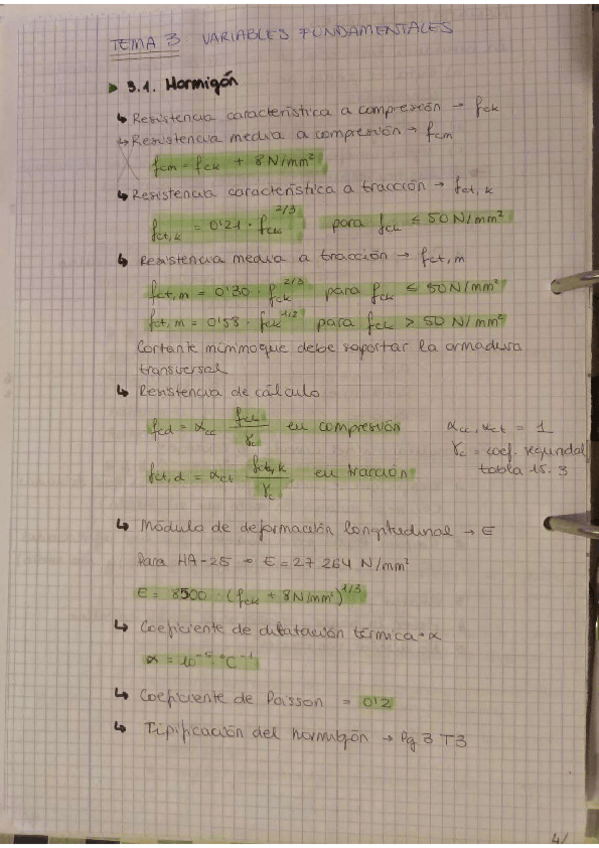 TEMA 3 VARIABLES FUNDAMENTALES
▶ 3.1. Hormigón
↳ Resistencia característica a compresión → fck
↳ Resistencia media a compresión → fcm
fcm = fck + 8 N/mm²
↳ Resistencia característica a tracción → fct,k
fct,k = 0'21 · fck^2/3 para fck ≤ 50 N/mm²
↳ Resistencia media a tracción → fct,m
fct,m = 0'30 · fck^2/3 para fck ≤ 50 N/mm²
fct,m = 0'58 · fck^1/2 para fck > 50 N/mm²
Cortante mínimo que debe soportar la armadura
transversal
↳ Resistencia de cálculo
fcd = αcc fck/γc en compresión αcc, αct = 1
γc = coef. seguridad
tabla 15.3
fct,d = αct fct,k/γc en tracción
↳ Módulo de deformación longitudinal → E
Para HA-25 → E = 27 264 N/mm²
E = 8500 · (fck + 8 N/mm²)^1/3
↳ Coeficiente de dilatación térmica · α
α = 10^-5 °C^-1
↳ Coeficiente de Poisson = 0'2
↳ Tipificación del hormigón → Pg 3 T3
4/